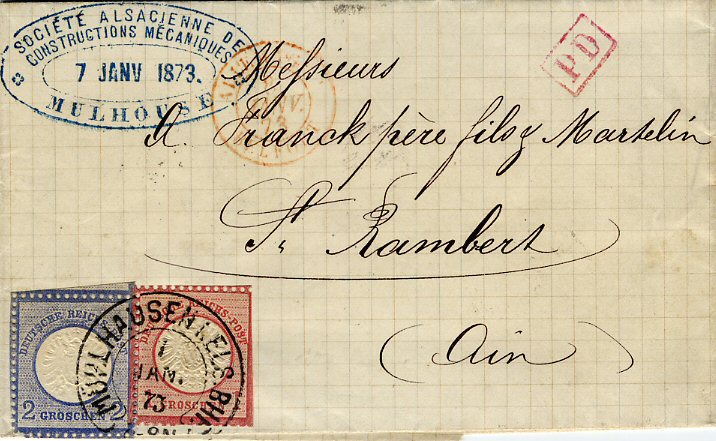 SOCIÉTÉ ALSACIENNE DE
CONSTRUCTIONS MÉCANIQUES
7 JANV 1873.
MULHOUSE
PD
Messieurs
A. Franck père fils & Martelin
St. Rambert
(Ain)
DEUTSCHE REICHS
2 2
GROSCHEN
DEUTSCHE REICHS-POST
GROSCHEN
MÜLHAUSEN I. ELS
JAN.
73